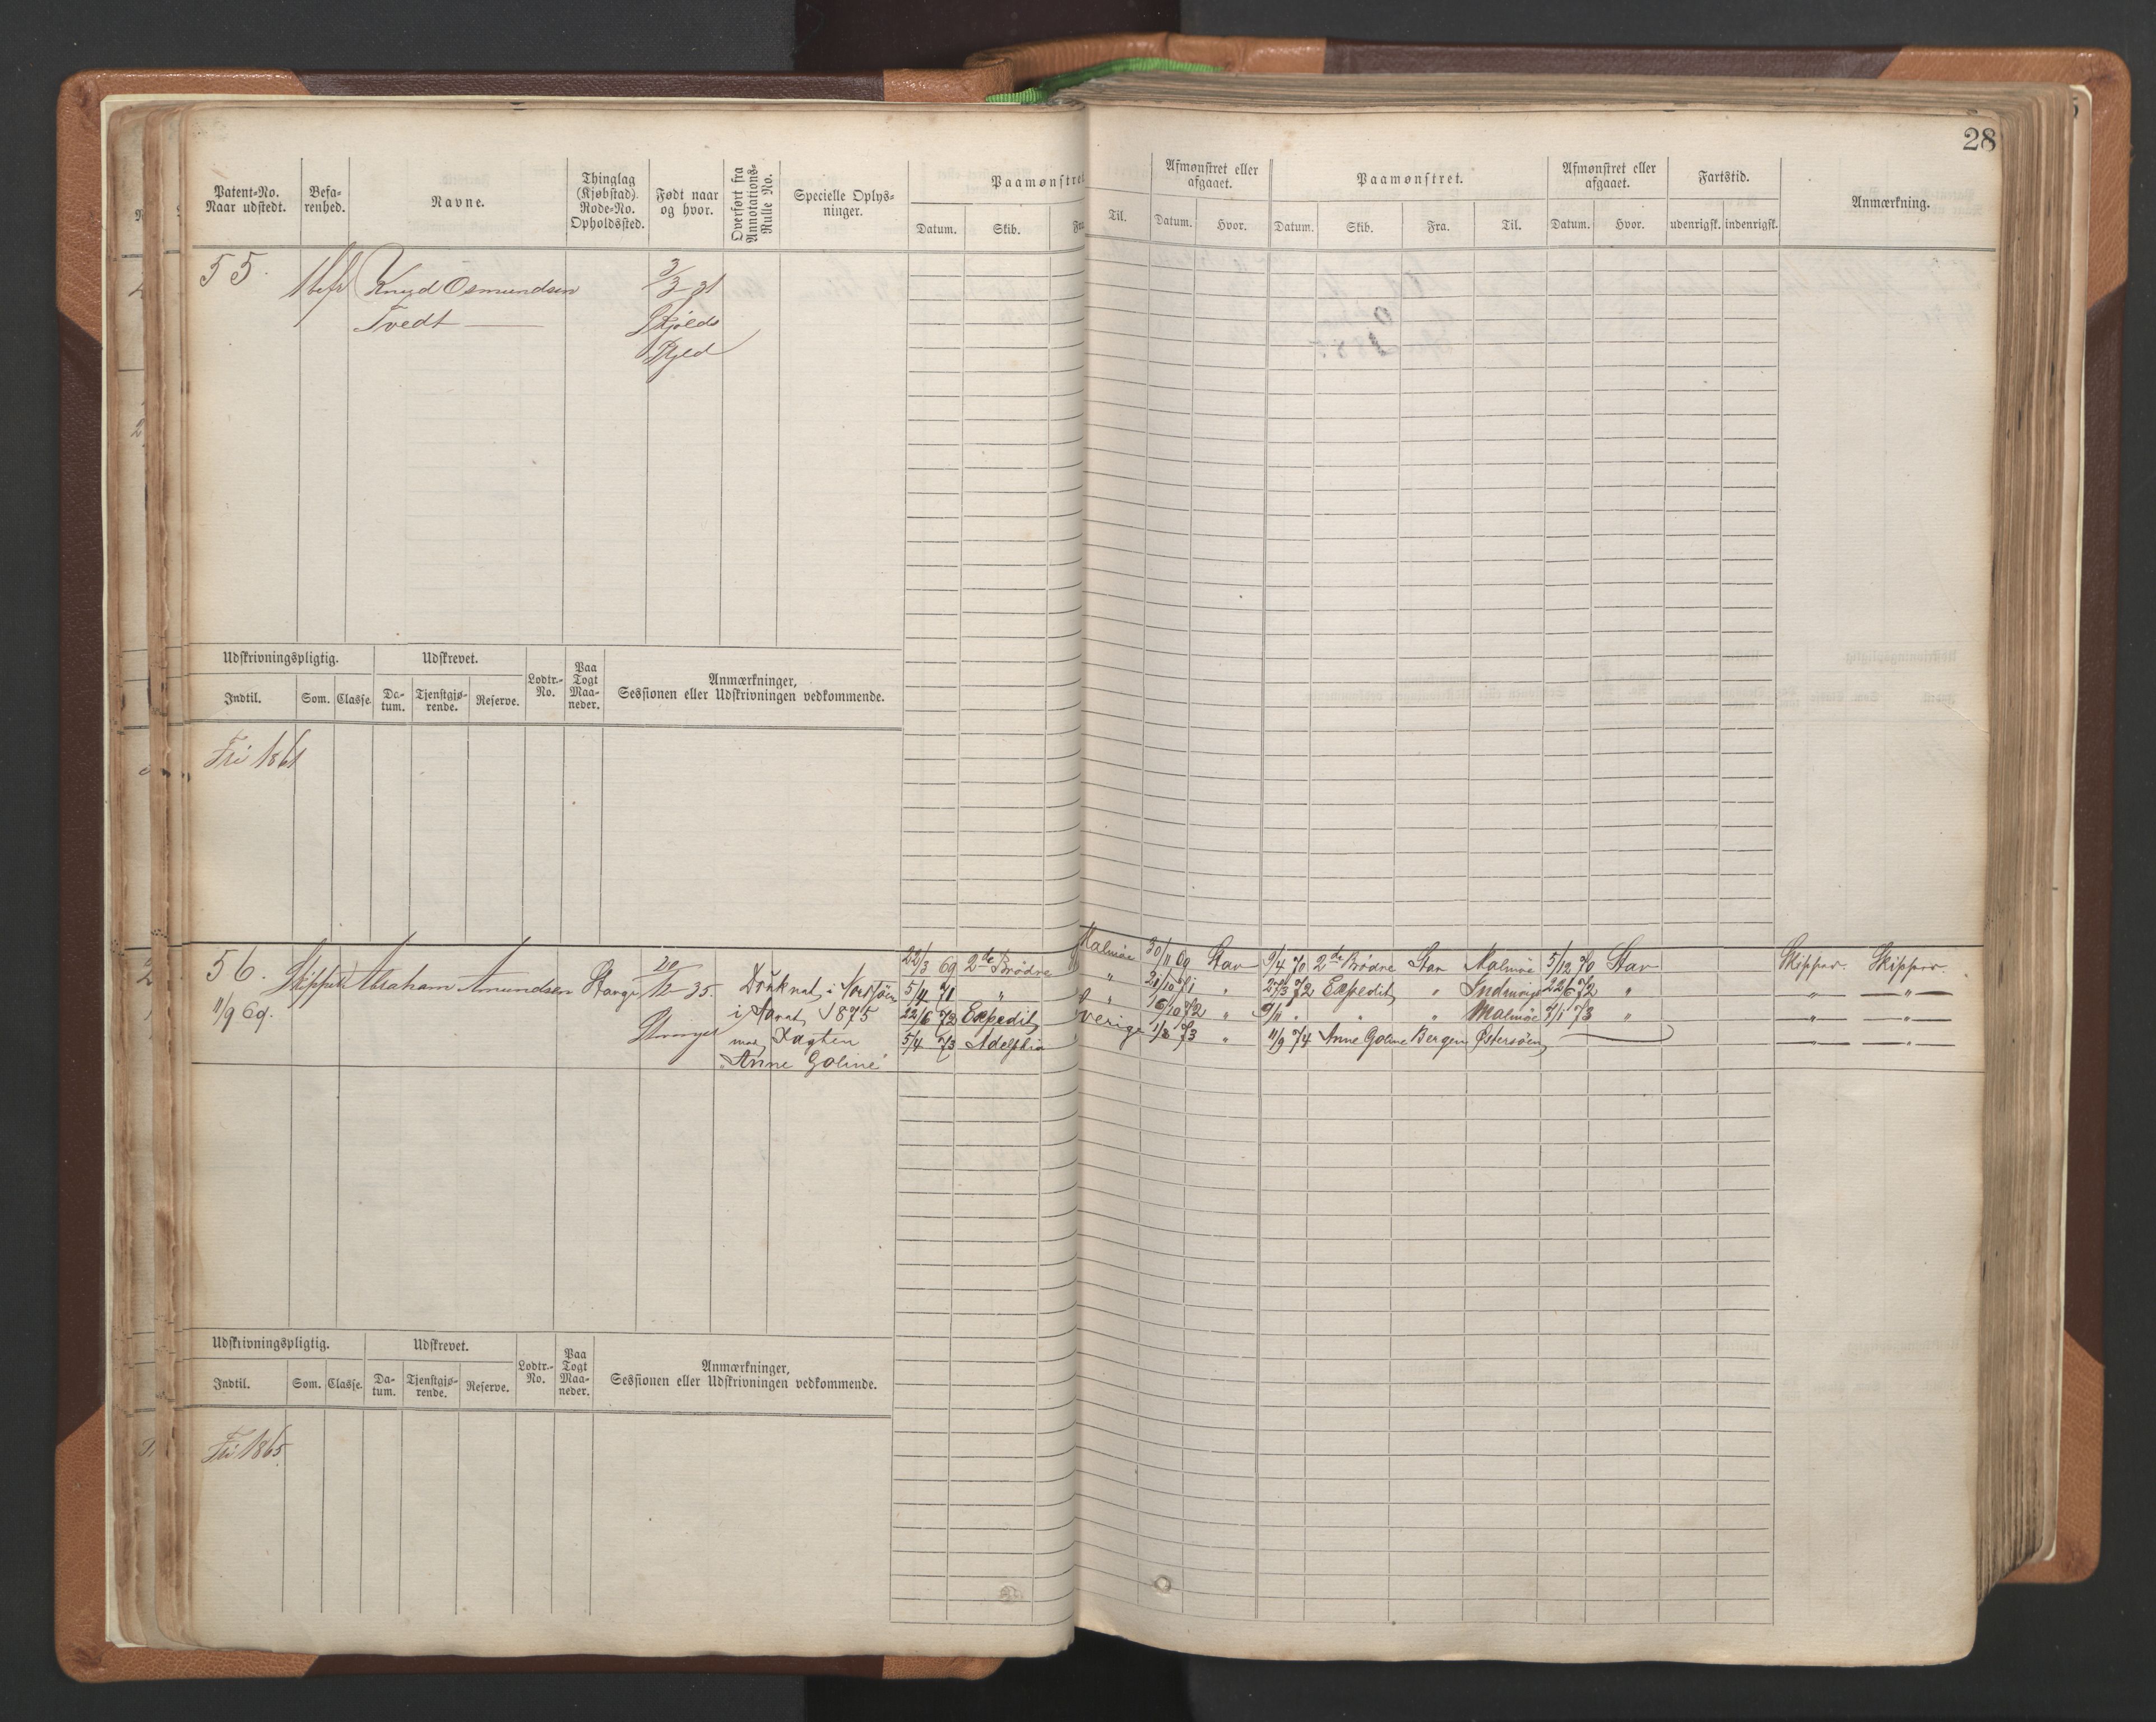 28
Patent-No.
Naar udstedt.
Befa-
renhed.
Navne.
Thinglag
(Kjøbstad).
Rode-No.
Opholdssted.
Født naar
og hvor.
Overført fra
Annotations-
Rulle No.
Specielle Oplys-
ninger.
Paamønstret
Datum.
Skib.
Fra
Til.
Afmønstret eller
afgaaet.
Datum.
Hvor.
Paamønstret.
Datum.
Skib.
Fra.
Til.
Afmønstret eller
afgaaet.
Datum.
Hvor.
Fartstid.
udenrigsk.
indenrigsk.
Anmærkning.
55.
Knud Osmundsen
Tvedt
3/3 31
Skjolds
Udskrivningspligtig.
Udskrevet.
Indtil.
Som.
Classe.
Da-
tum.
Tjenstgjø-
rende.
Reserve.
Lodtr.-
No.
Paa
Togt
Maa-
neder.
Anmærkninger,
Sessionen eller Udskrivningen vedkommende.
Fri 1861
56.
11/9 69.
Skipper
Abraham Amundsen
Stavgr
20/12 35.
Druknat i Nordsjøen
i 1875
med Jagten
"Anne Goline"
22/3 69 2de Brødre Malmøe 30/11 69 Stav 9/4 70 2de Brødre Stav Malmøe 5/12 70 Stav Skipper. Skipper.
5/4 71 " " 21/10 71 " 27/3 72 Expedit " 22/6 72 " " "
22/6 72 Expedit " 16/10 72 " 9/11 " " Malmøe 7/1 73 " " "
5/4 73 Adelphia Sverige 1/8 73 " 11/9 74 Anne Goline Bergen Østersøen " "
Udskrivningspligtig.
Udskrevet.
Indtil.
Som.
Classe.
Da-
tum.
Tjenstgjø-
rende.
Reserve.
Lodtr.-
No.
Paa
Togt
Maa-
neder.
Anmærkninger,
Sessionen eller Udskrivningen vedkommende.
Fri 1865.